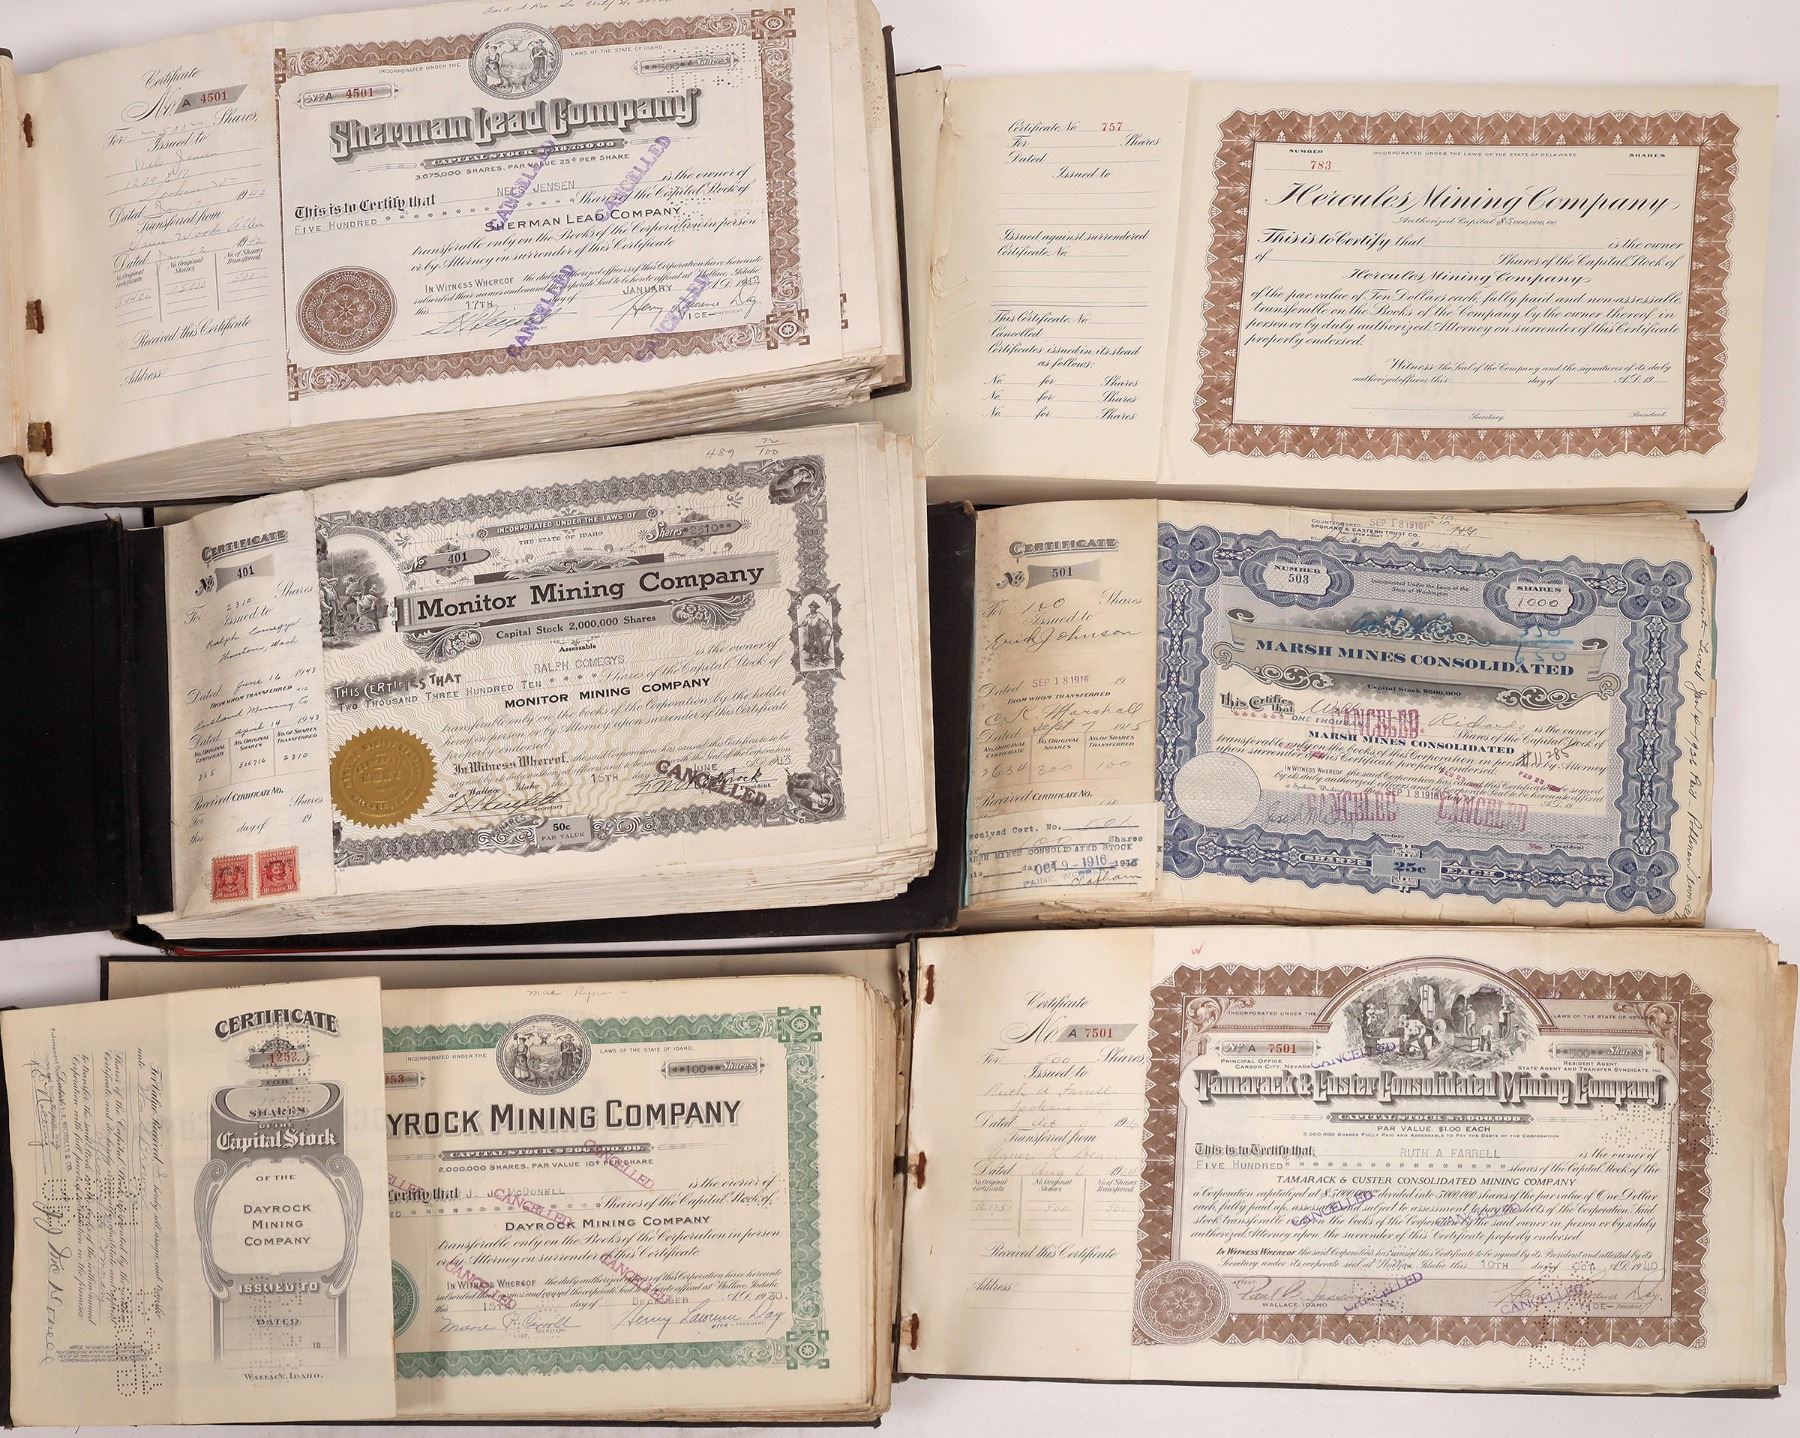 Certificate
No. A 4501
For 500 Shares,
Issued to
Nels Jensen
Dated
Transferred from
Dated
No. Original Certificate
No. Original Shares
No. of Shares Transferred
Received this Certificate
Address:
INCORPORATED UNDER THE LAWS OF THE STATE OF IDAHO.
No. A 4501
500 Shares
Sherman Lead Company
3,675,000 SHARES, PAR VALUE 25¢ PER SHARE
This is to Certify that NELS JENSEN is the owner of
FIVE HUNDRED Shares of the Capital Stock of
SHERMAN LEAD COMPANY
transferable only on the Books of the Corporation in person
or by Attorney on surrender of this Certificate
IN WITNESS WHEREOF the duly authorized officers of this Corporation have hereunto
subscribed their names and caused the corporate Seal to be hereto affixed at Wallace, Idaho.
this 17TH day of JANUARY A.D. 1942
Henry Lawrence Day
VICE-PRESIDENT
CANCELLED
CANCELLED
CANCELLED
CANCELLED
Certificate No. 757
For Shares
Dated
Issued to
Issued against surrendered
Certificate No.
This Certificate No.
Cancelled
Certificates issued in its stead
as follows:
No. for Shares
No. for Shares
No. for Shares
NUMBER
783
INCORPORATED UNDER THE LAWS OF THE STATE OF DELAWARE
SHARES
Hercules Mining Company
Authorized Capital $5,000,000.00
This is to Certify that is the owner
of Shares of the Capital Stock of
Hercules Mining Company
of the par value of Ten Dollars each, fully paid and non-assessable
transferable on the Books of the Company by the owner thereof in
person or by duly authorized Attorney on surrender of this Certificate
properly endorsed.
Witness the Seal of the Company and the signatures of its duly
authorized officers this day of A.D. 19
Secretary.
President.
CERTIFICATE
No. 401
For 2310 Shares
Issued to
Ralph Comegys
Dated June 16 1943
FROM WHOM TRANSFERRED
Mining Co.
Dated April 14 1943
NO. ORIGINAL CERTIFICATE
NO. ORIGINAL SHARES
NO. OF SHARES TRANSFERRED
506716 2310
Received CERTIFICATE NO.
For Shares
this day of 19
489
72/100
INCORPORATED UNDER THE LAWS OF
THE STATE OF IDAHO
No. 401
Shares **2310**
Monitor Mining Company
Capital Stock 2,000,000 Shares
Assessable
THIS CERTIFIES THAT RALPH COMEGYS is the owner of
TWO THOUSAND THREE HUNDRED TEN Shares of the Capital Stock of
MONITOR MINING COMPANY
transferable only on the books of the Corporation, by the holder
hereof in person or by Attorney upon surrender of this Certificate
properly endorsed.
In Witness Whereof, the said Corporation has caused this Certificate to be
signed by its duly authorized officers and to be sealed with the Seal of the Corporation
at Wallace Idaho this 15th day of JUNE A.D. 1943
Secretary
President
CANCELLED
SHARES
50c
PAR VALUE
EACH
CERTIFICATE
No. 501
For 100 Shares
Issued to
Erick Johnson
Dated SEP 18 1916 19
FROM WHOM TRANSFERRED
Marshall
Dated Sept 7 1915
NO. ORIGINAL CERTIFICATE
NO. ORIGINAL SHARES
NO. OF SHARES TRANSFERRED
2634 300 100
Received CERTIFICATE NO.
Received Cert. No. 501
Shares
MARSH MINES CONSOLIDATED STOCK
OCT 9 - 1916
COUNTERSIGNED SEP 18 1916
SPOKANE & EASTERN TRUST CO.
NUMBER
503
Incorporated Under the Laws of the
State of Washington
SHARES
1000
MARSH MINES CONSOLIDATED
Capital Stock $500,000
This Certifies that Richards is the owner of
ONE THOUSAND Shares of the Capital Stock of
MARSH MINES CONSOLIDATED
transferable only on the books of the Corporation in person or by Attorney
upon surrender of this Certificate properly endorsed.
IN WITNESS WHEREOF the said Corporation has caused this Certificate to be signed
by its duly authorized officers and its Corporate Seal to be hereunto affixed
at Spokane, Washington, SEP 18 1916
Secretary
Vice President
CANCELED
CANCELED
CANCELED
SHARES 25c EACH
CERTIFICATE
1252
FOR
100
SHARES
OF THE
Capital Stock
OF THE
DAYROCK
MINING
COMPANY
ISSUED TO
DATED
WALLACE, IDAHO.
INCORPORATED UNDER THE LAWS OF THE STATE OF IDAHO.
253
**100** Shares
DAYROCK MINING COMPANY
CAPITAL STOCK $200,000.00.
2,000,000 SHARES, PAR VALUE 10¢ PER SHARE
Certify that J. J. MCDONELL is the owner of
Shares of the Capital Stock of
DAYROCK MINING COMPANY
transferable only on the Books of the Corporation in person
or by Attorney on surrender of this Certificate
IN WITNESS WHEREOF the duly authorized officers of this Corporation have hereunto
subscribed their names and caused the corporate Seal to be hereto affixed at Wallace, Idaho.
this 15th day of DECEMBER A.D. 1930
Henry Lawrence Day
SECRETARY
VICE-PRESIDENT
CANCELLED
CANCELLED
CANCELLED
CANCELLED
CANCELLED
Certificate
No. A 7501
For 500 Shares,
Issued to
Ruth A Farrell
Dated Oct
Transferred from
Dated Aug
No. Original Certificate
No. Original Shares
No. of Shares Transferred.
500 500
Received this Certificate
Address:
INCORPORATED UNDER THE LAWS OF THE STATE OF NEVADA
No. A 7501
500 Shares
PRINCIPAL OFFICE
CARSON CITY, NEVADA
RESIDENT AGENT
STATE AGENT AND TRANSFER SYNDICATE, INC.
Tamarack & Custer Consolidated Mining Company
CAPITAL STOCK $5,000,000.
PAR VALUE, $1.00 EACH
5,000,000 SHARES FULLY PAID AND ASSESSABLE TO PAY THE DEBTS OF THE CORPORATION
This is to Certify that RUTH A FARRELL is the owner of
FIVE HUNDRED shares of the Capital Stock of the
TAMARACK & CUSTER CONSOLIDATED MINING COMPANY
a Corporation capitalized at $5,000,000 divided into 5,000,000 shares of the par value of One Dollar
each, fully paid up, assessable and subject to assessment to pay the debts of the Corporation. Said
stock transferable upon the books of the Corporation by the said owner in person or by a duly
authorized Attorney upon the surrender of this Certificate properly endorsed.
IN WITNESS WHEREOF the said Corporation has caused this Certificate to be signed by its President and attested by its
Secretary under its corporate seal at Wallace, Idaho, this 10TH day of OCT A.D. 1940
ATTEST
WALLACE, IDAHO
Henry Lawrence Day
VICE-PRESIDENT
CANCELLED
CANCELLED
CANCELLED
CANCELLED
CANCELLED